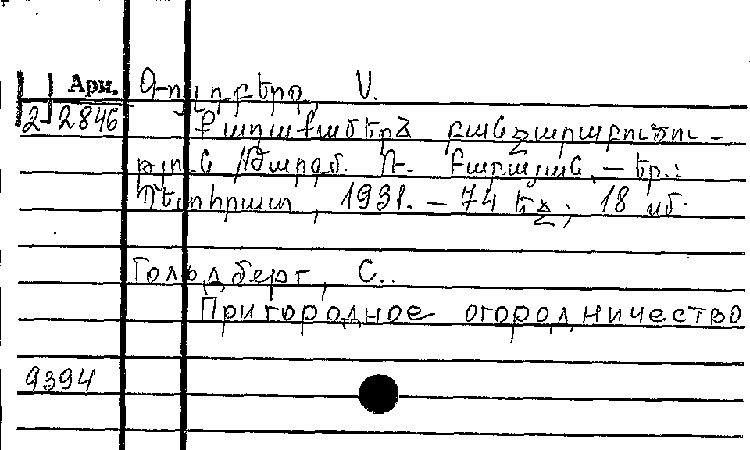 Арм. Գոլդբերգ, Ս.
2 2846 Քաղաքամերձ բանջարաբուծու-
թյուն /Թարգմ. Ռ. Բաբայան, — Եր.:
Պետհրատ, 1931. — 74 էջ; 18 սմ.
Гольдберг, С..
Пригородное огородничество
9394